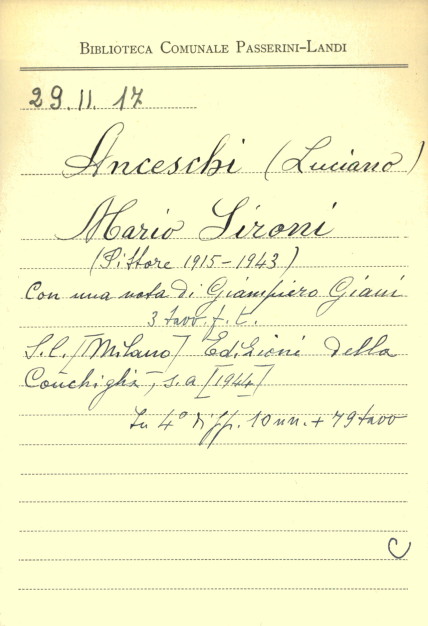 BIBLIOTECA COMUNALE PASSERINI-LANDI
29.II.17
Anceschi (Luciano)
Mario Sironi
(Pittore 1915-1943)
Con una nota di Giampiero Giani
3 tavv. f. t.
S.l. [Milano] Edizioni della
Conchiglia, s.a [1944]
In 4° di ff. 10 nn. + 79 tavv
C